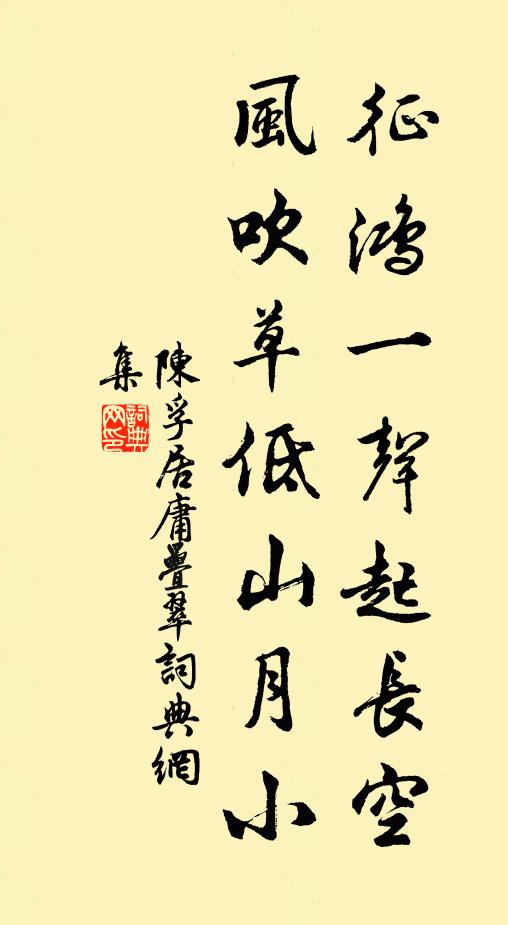 征鸿一聲起長空
風吹草低山月小
陳孚居庸疊翠詞典網
集
詞典網印